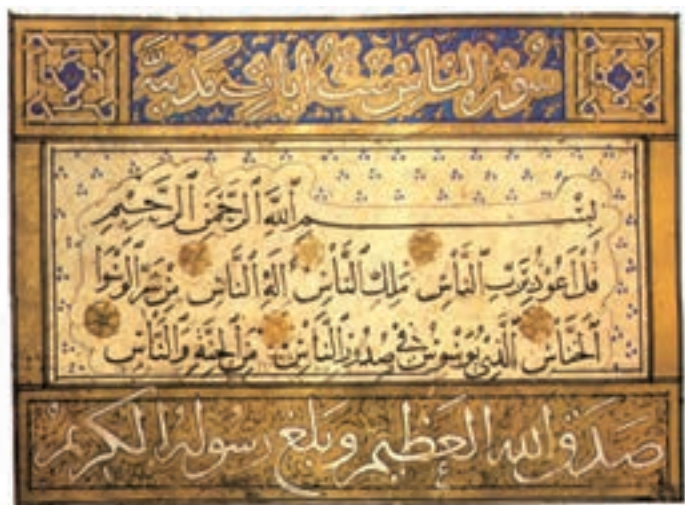 سورة الناس ست آيات مدنية
بِسْمِ ٱللَّهِ ٱلرَّحْمَنِ ٱلرَّحِيمِ
قُلْ أَعُوذُ بِرَبِّ النَّاسِ مَلِكِ النَّاسِ إِلَهِ النَّاسِ مِنْ شَرِّ الْوَسْوَاسِ
الْخَنَّاسِ الَّذِي يُوَسْوِسُ فِي صُدُورِ النَّاسِ مِنَ الْجِنَّةِ وَالنَّاسِ
صدق الله العظيم وبلغ رسوله الكريم